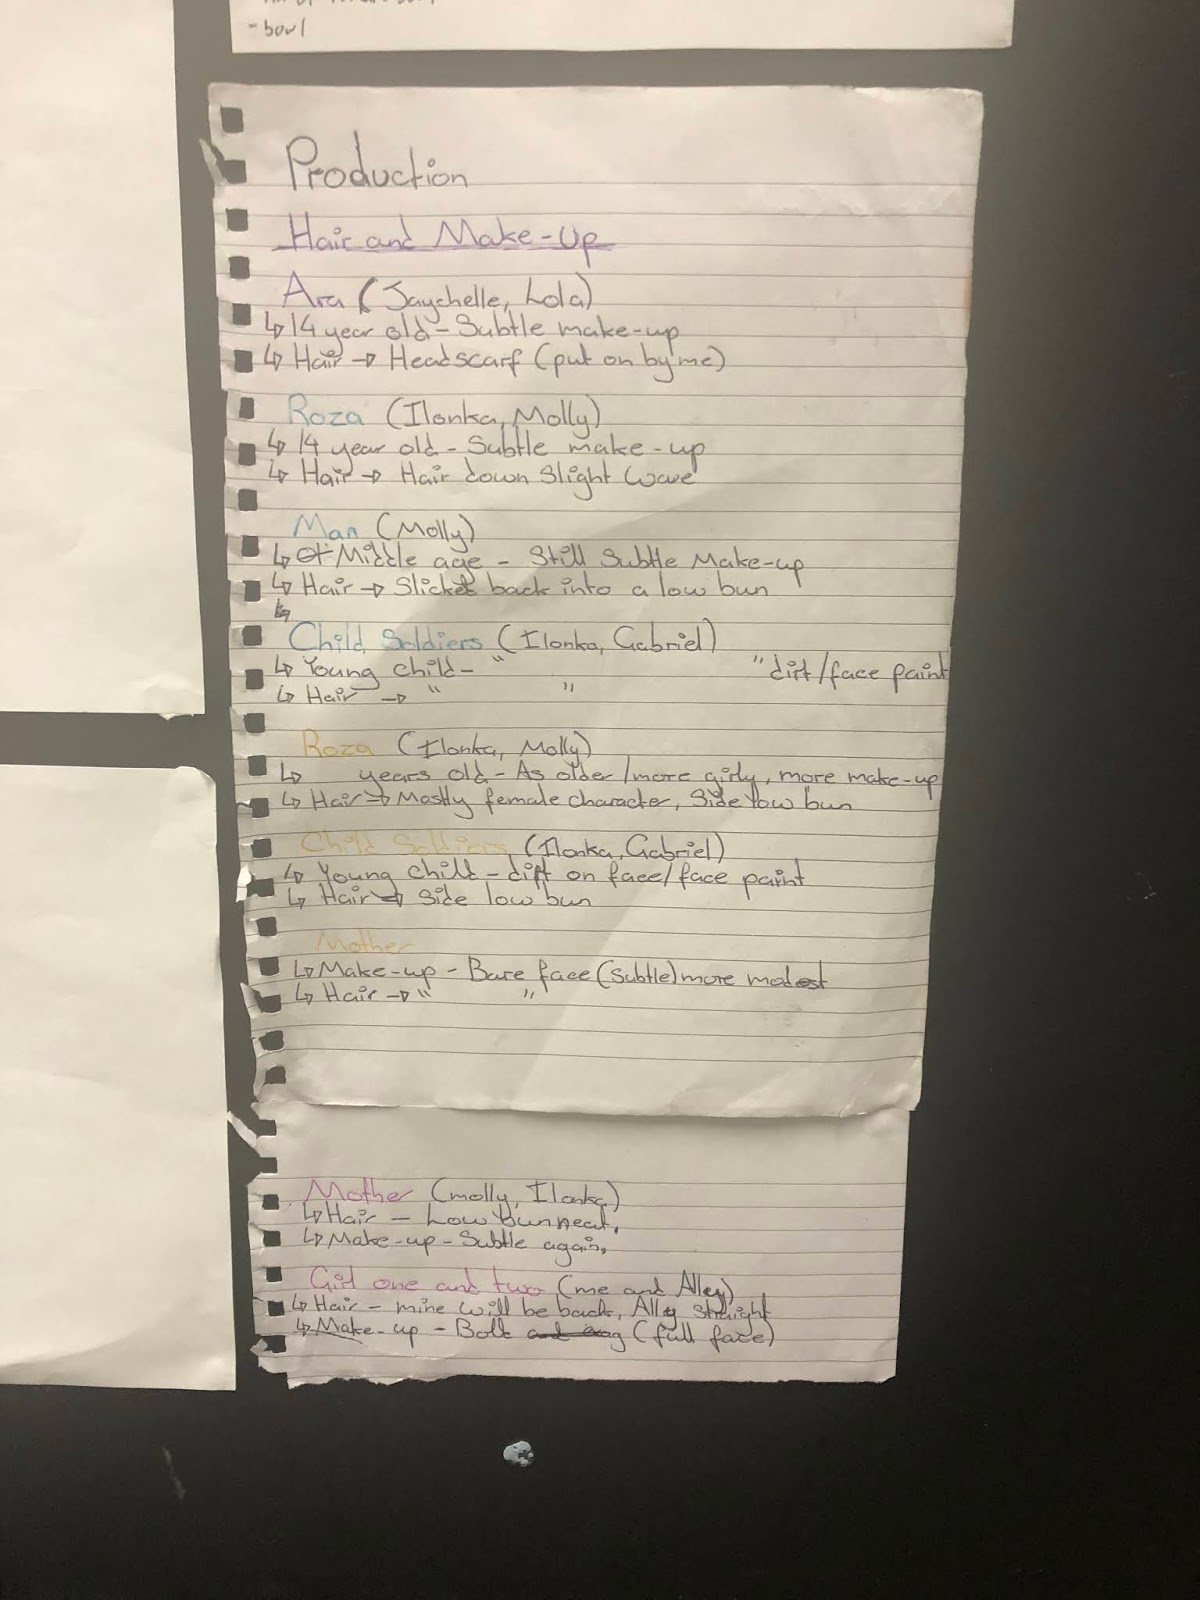 -bowl
Production
Hair and Make-Up
Ara (Jaychelle, Lola)
↳ 14 year old - Subtle make-up
↳ Hair → Headscarf (put on by me)
Roza (Ilonka, Molly)
↳ 14 year old - Subtle make-up
↳ Hair → Hair down Slight Wave
Man (Molly)
↳ Middle age - Still Subtle Make-up
↳ Hair → Slicket back into a low bun
↳
Child Soldiers (Ilonka, Gabriel)
↳ Young child - " " dirt/face paint
↳ Hair → " "
Roza (Ilonka, Molly)
↳ years old - As older/more girly, more make-up
↳ Hair → Mostly female character, Side low bun
Child Soldiers (Ilonka, Gabriel)
↳ Young child - dirt on face/face paint
↳ Hair → Side low bun
Mother
↳ Make-up - Bare face (Subtle) more modest
↳ Hair → " "
Mother (molly, Ilonka)
↳ Hair - Low bun neat,
↳ Make-up - Subtle again,
Girl one and two (me and Alley)
↳ Hair - mine will be back, Alley Straight
↳ Make-up - Bold (full face)